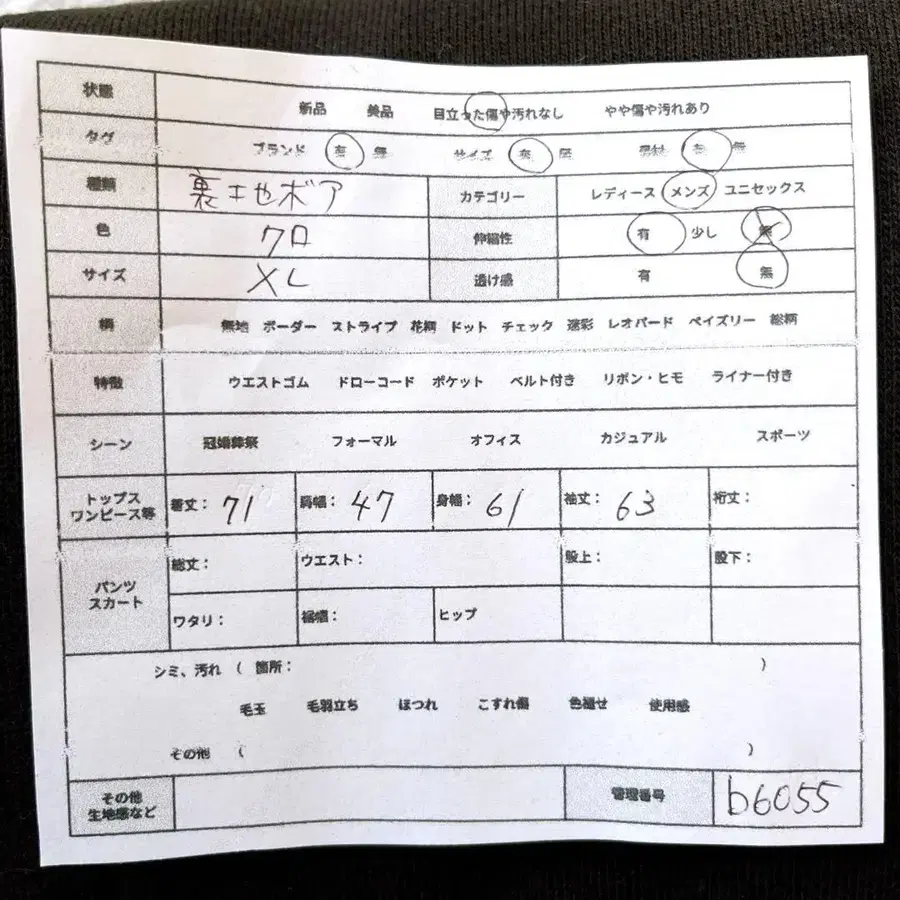 状態 新品 美品 目立った傷や汚れなし やや傷や汚れあり
タグ ブランド 有 無 サイズ 有 無 素材 有 無
種類 裏起毛ボア カテゴリー レディース メンズ ユニセックス
色 クロ 伸縮性 有 少し 無
サイズ XL 透け感 有 無
柄 無地 ボーダー ストライプ 花柄 ドット チェック 迷彩 レオパード ペイズリー 総柄
特徴 ウエストゴム ドローコード ポケット ベルト付き リボン・ヒモ ライナー付き
シーン 冠婚葬祭 フォーマル オフィス カジュアル スポーツ
トップス
ワンピース等 着丈：71 肩幅：47 身幅：61 袖丈：63 裄丈：
パンツ
スカート 総丈： ウエスト： 股上： 股下：
ワタリ： 裾幅： ヒップ
シミ、汚れ （ 箇所： ）
毛玉 毛羽立ち ほつれ こすれ傷 色褪せ 使用感
その他 （ ）
その他
生地感など 管理番号 b6055